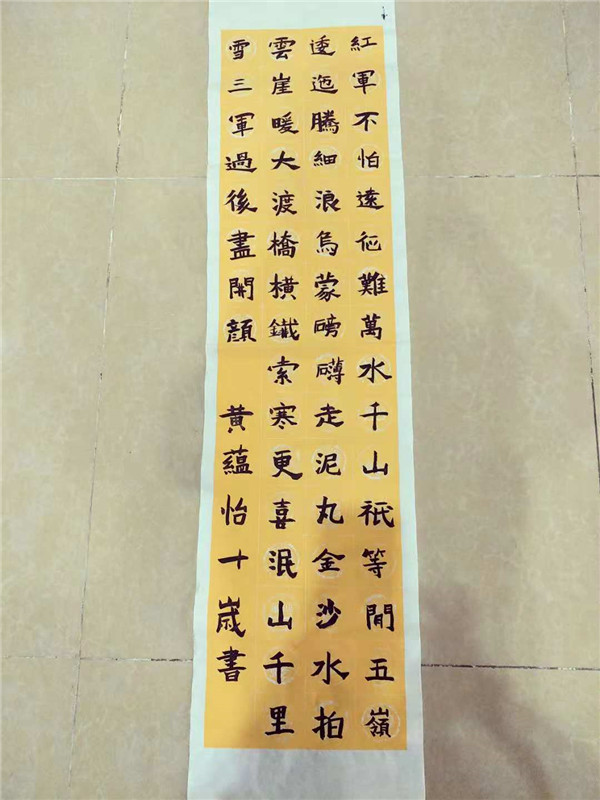 紅軍不怕遠征難萬水千山祇等閒五嶺
逶迤騰細浪烏蒙磅礴走泥丸金沙水拍
雲崖暖大渡橋橫鐵索寒更喜泯山千里
雪三軍過後盡開顏 黄蘊怡十歲書